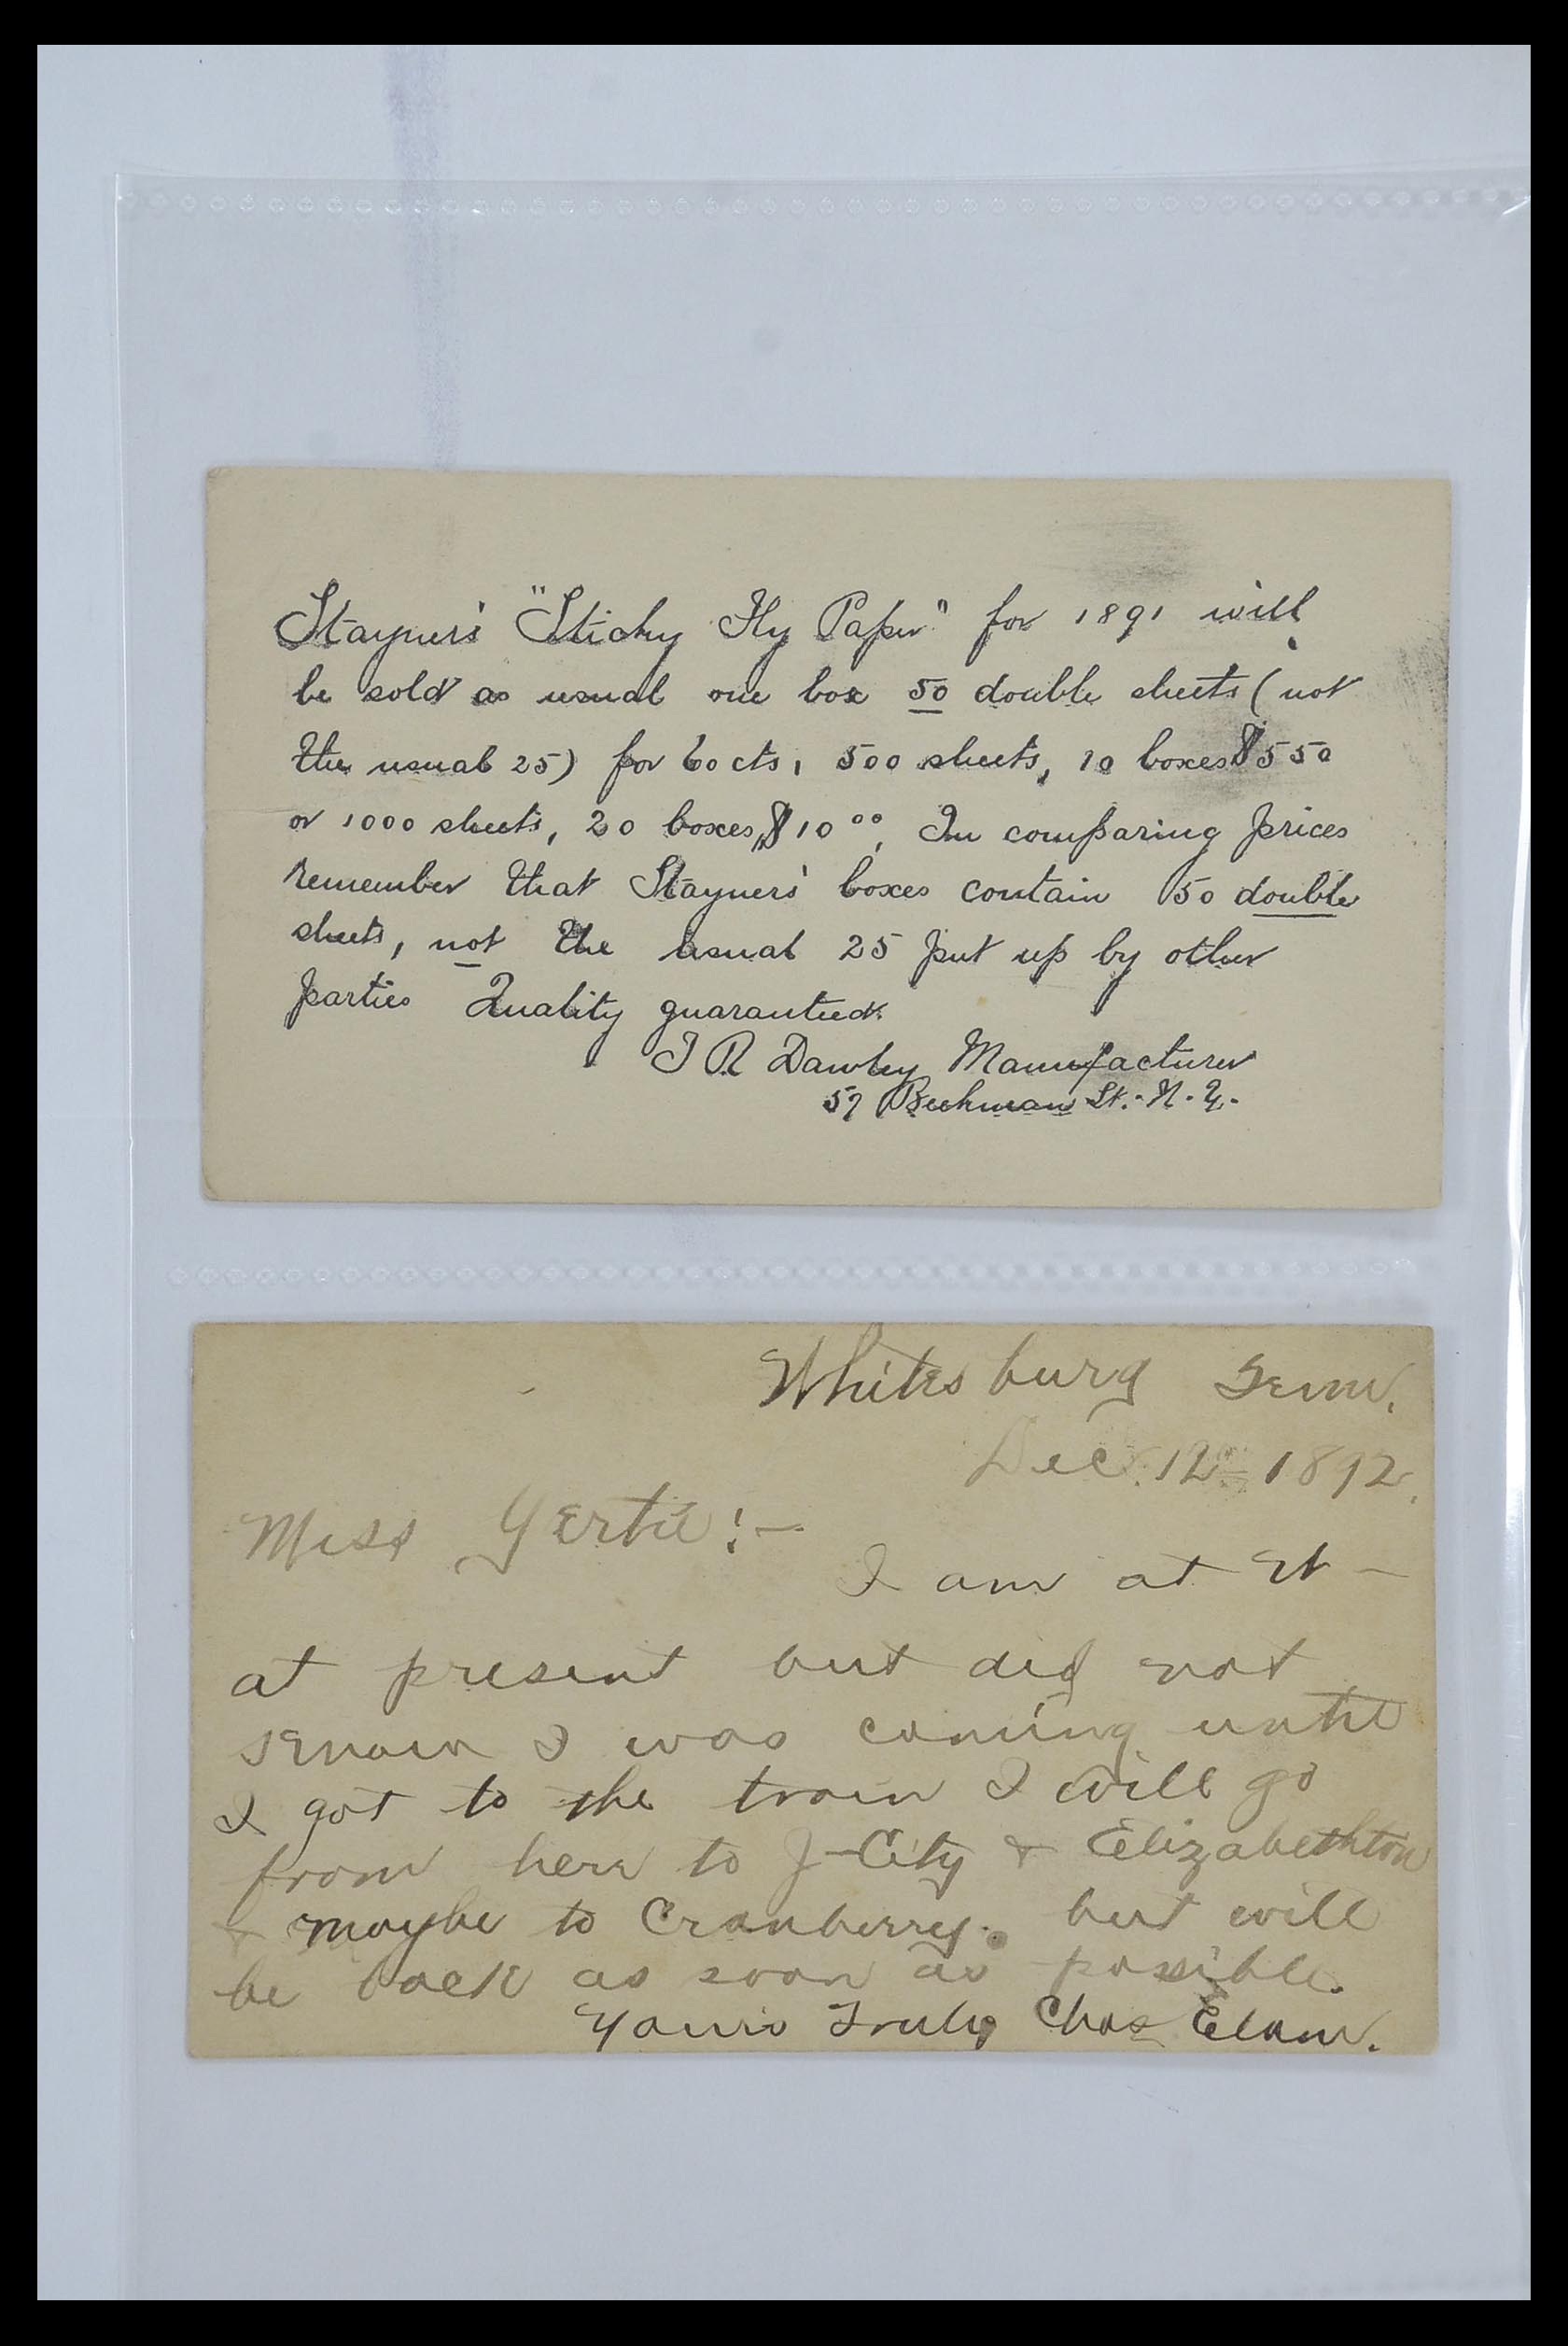 Stayner's "Sticky Fly Paper" for 1891 will
be sold as usual one box 50 double sheets (not
the usual 25) for 60 cts, 500 sheets, 10 boxes $550
or 1000 sheets, 20 boxes, $10 00, In comparing prices
remember that Stayners' boxes contain 50 double
sheets, not the usual 25 put up by other
parties Quality guaranteed.
T R Dawley Manufacturer
57 Beekman St. - N. Y. -
Whitesburg Tenn.
Dec. 12 - 1892.
Miss Gertie : -
I am at W -
at present but did not
know I was coming until
I got to the train I will go
from here to J - City & Elizabethton
& maybe to Cranberry. but will
be back as soon as possible.
Yours Truly Chas Elam.